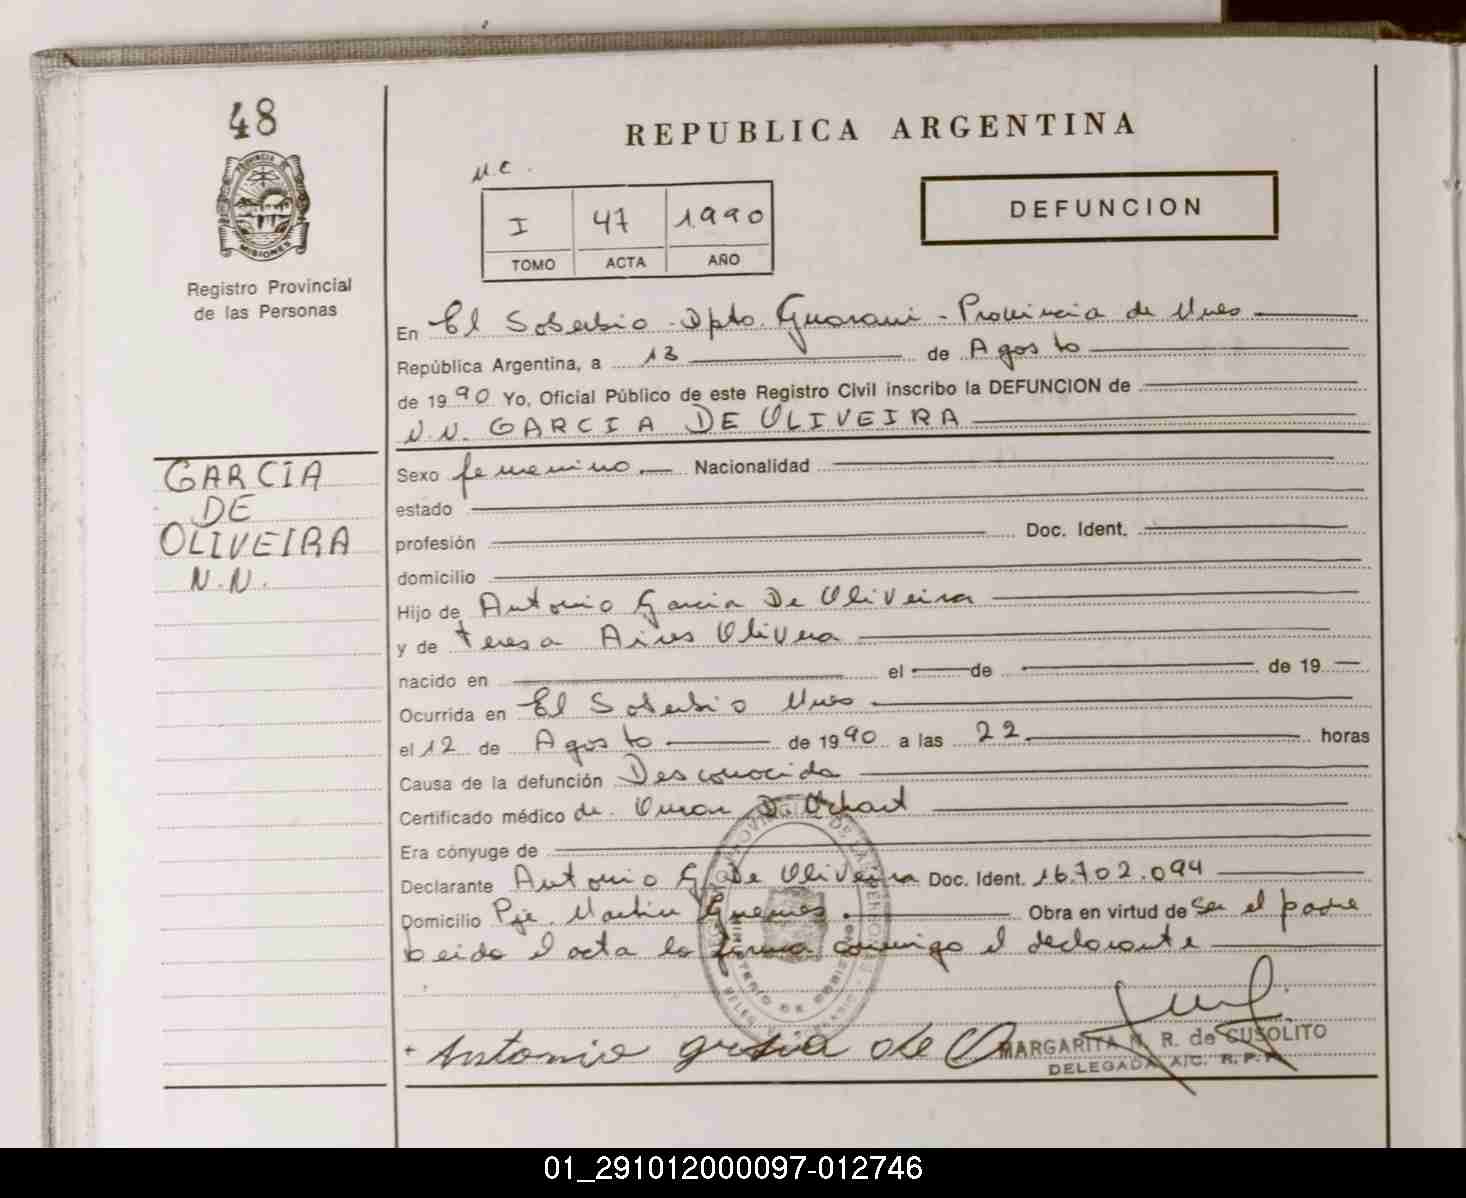 48
PROVINCIA DE
MISIONES
Registro Provincial
de las Personas
REPUBLICA ARGENTINA
DEFUNCION
I 47 1990
TOMO ACTA AÑO
En El Soberbio - Dpto. Guarani - Provincia de Mnes
República Argentina, a 13 de Agosto
de 1990 Yo, Oficial Público de este Registro Civil inscribo la DEFUNCION de
N.N. GARCIA DE OLIVEIRA
GARCIA
DE
OLIVEIRA
N.N.
Sexo femenino Nacionalidad
estado
profesión Doc. Ident.
domicilio
Hijo de Antonio Garcia De Oliveira
y de Teresa Aires Olivera
nacido en el de de 19
Ocurrida en El Soberbio Mnes
el 12 de Agosto de 1990 a las 22 horas
Causa de la defunción Desconocida
Certificado médico de.
Era cónyuge de
Declarante Antonio G. De Oliveira Doc. Ident. 16.702.094
Domicilio Pje. Martin Guemes. Obra en virtud de Ser el padre
Leida el acta la firma conmigo el declarante
Antonio de O
MARGARITA R. de CUSOLITO
DELEGADA A/C. R.P.P.
01_291012000097-012746